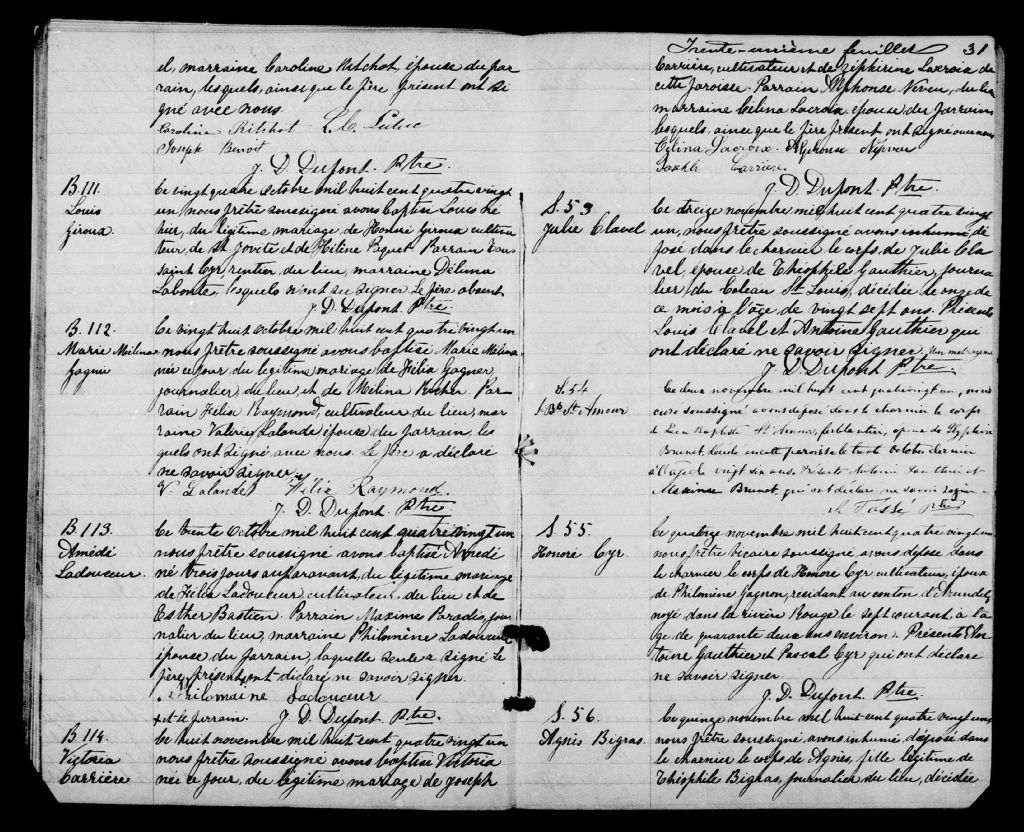 el, marraine Caroline Ritchot, épouse du par
rain, lesquels, ainsi que le père présent ont si
gné avec nous.
Caroline Ritchot L. C. Leduc
Joseph Benoit
J. D. Dupont. Ptre.
B. 111.
Louis
Giroux.
Le vingt quatre octobre mil huit cent quatre vingt
un, nous prêtre soussigné avons baptisé Louis né
hier, du légitime mariage de Honoré Giroux cultiva
teur, de St Jovite et de Héline Paquet Parrain Tou
saint Cyr, rentier, du lieu, marraine Délima
Labonté, lesquels n'ont su signer. Le père absent
J. D. Dupont. Ptre.
B. 112.
Marie Mélina
Gagnier
Le vingt huit octobre mil huit cent quatre vingt un
nous prêtre soussigné avons baptisé Marie Mélina
née ce jour du légitime mariage de Félix Gagner,
journalier, du lieu, et de Mélina Richer. Par
rain Félix Raymond, cultivateur du lieu, mar
raine Valérie Lalande épouse du parrain, les
quels ont signé avec nous. Le père a déclaré
ne savoir signer
V. Lalande Félix Raymond.
J. D. Dupont. Ptre.
B. 113.
Amédé
Ladouceur.
Le trente octobre mil huit cent quatre vingt un
nous prêtre soussigné avons baptisé Amédé
né trois jours auparavant, du légitime mariage
de Félix Ladouceur, cultivateur, du lieu et de
Esther Bastien. Parrain Maxime Paradis, jour
nalier du lieu, marraine Philomène Ladouceur
épouse du parrain, laquelle seule a signé Le
père, présent, ont déclaré ne savoir signer.
Philomaine Ladouceur
+ et le parrain. J. D. Dupont. Ptre.
B. 114.
Victoria
Carrière
Le huit novembre mil huit cent quatre vingt un
nous prêtre soussigné avons baptisé Victoria
née ce jour, du légitime mariage de Joseph
Trente-unième feuillet 31
Carrière, cultivateur et de Zéphirine Lacroix de
cette paroisse. Parrain Alphonse Néveu, du lieu
marraine Célina Lacroix, épouse du parrain
lesquels, ainsi que le père présent ont signé avec nous
Célina Lacroix. Alphonse Nepveu
Joseph Carrière.
J. D. Dupont. Ptre.
S. 53
Julie Clavel
Le dreize novembre mil huit cent quatre vingt
un, nous prêtre soussigné avons inhumé, dé
posé dans le charnier le corps de Julie Cla
vel, épouse de Théophile Gauthier, journa
lier, du Coteau St Louis, décédée le onze de
ce mois à l'âge de vingt sept ans. Présents
Louis Clavel et Antoine Gauthier qui
ont déclaré ne savoir signer. Un mot rayé
J. D. Dupont Ptre.
S. 54
J. Bte St Amour
Le deux novembre mil huit cent quatrevingt un, nous
curé soussigné avons déposé dans le charnier le corps
de Jean Baptiste St Amour, ferblantier, époux de
Brunet, décédé en cette paroisse le trente octobre dernier
à l'âge de vingt six ans. Présents Antoine Gauthier et
Maxime Brunet, qui ont déclaré ne savoir signer.
Tassé Ptre
S. 55
Honoré Cyr.
Le quatorze novembre mil huit cent quatre vingt un
nous prêtre vicaire soussigné avons déposé dans
le charnier le corps de Honoré Cyr cultivateur, époux
de Philomine Gagnon, résidant au canton d'Arundel,
noyé dans la rivière Rouge le sept courant, à l'â
ge de quarante deux ans environ. Présents An
toine Gauthier et Pascal Cyr qui ont déclaré
ne savoir signer.
J. D. Dupont. Ptre.
S. 56.
Agnès Bigras.
Le quinze novembre mil huit cent quatre vingt un
nous prêtre soussigné, avons inhumé, déposé dans
le charnier le corps de Agnès, fille légitime de
Théophile Bigras, journalier du lieu, décédée